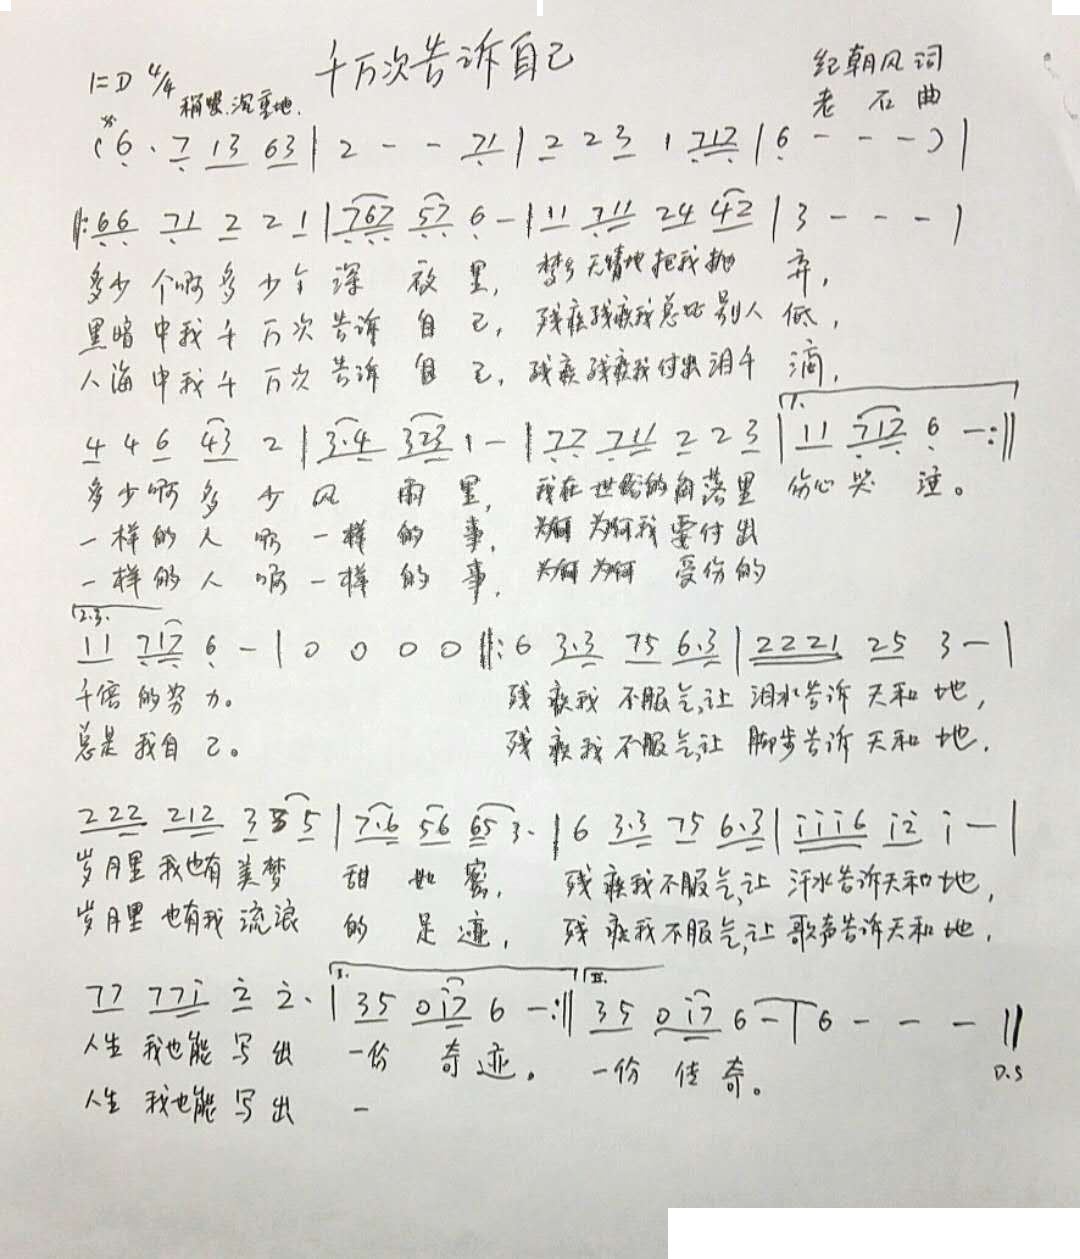 千万次告诉自己
1=D 4/4 稍慢.沉重地.
纪朝风词
老石曲
(6· 7 13 63 | 2 - - 71 | 2 2 3 1 712 | 6 - - -) |
‖:66 71 2 2 1 | 767 57 6 - | 11 711 24 42 | 3 - - - |
多少个啊多少个深夜里, 梦乡无情地把我抛弃,
黑暗中我千万次告诉自己, 残疾残疾我总比别人低,
人海中我千万次告诉自己, 残疾残疾我付出泪千滴,
4 4 6 43 2 | 3·4 323 1 - | 77 711 2 2 3 | 1. 11 717 6 - :‖
多少啊多少风雨里, 我在世俗的角落里伤心哭泣。
一样的人啊一样的事, 为何为何我要付出
一样的人啊一样的事, 为何为何受伤的
2.3.
11 717 6 - | 0 0 0 0 ‖: 6 3·3 75 6·3 | 2221 25 3 - |
千倍的努力。 残疾我不服气,让泪水告诉天和地,
总是我自己。 残疾我不服气,让脚步告诉天和地,
222 212 3 5 5 | 7·6 56 65 3· | 6 3·3 75 6·3 | i i i 6 i 2 i - |
岁月里我也有美梦甜如蜜, 残疾我不服气,让汗水告诉天和地,
岁月里也有我流浪的足迹, 残疾我不服气,让歌声告诉天和地,
77 77i 2 2· | I. 35 0i7 6 - :‖ II. 35 0i7 6 - | 6 - - - ‖
人生我也能写出一份奇迹。 一份传奇。 D.S
人生我也能写出一